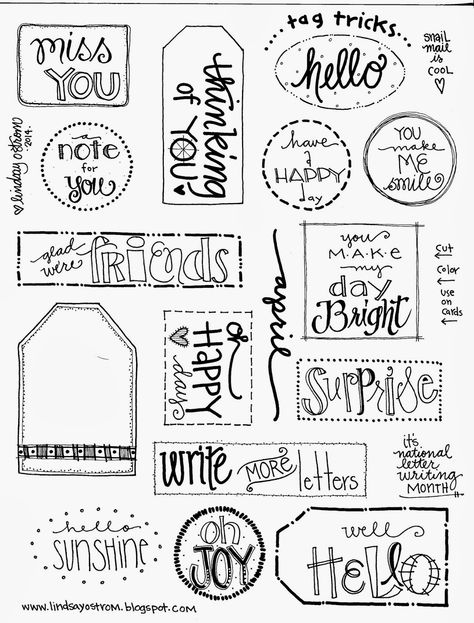 tag tricks...
miss
YOU
thinking
of YOU
hello
snail
mail
is
COOL
lindsay ostrom
2014.
a
note
for
YOU
have
a
HAPPY
day
YOU
make
ME
smile
glad
we're
friends
YOU
MAKE
my
day
Bright
cut
color
use
on
cards
april
oh
Happy
day
Surprise
write MORE letters
it's
national
letter
writing
MONTH
hello
SUNSHINE
oh
JOY
well
HELLO
www.lindsayostrom.blogspot.com